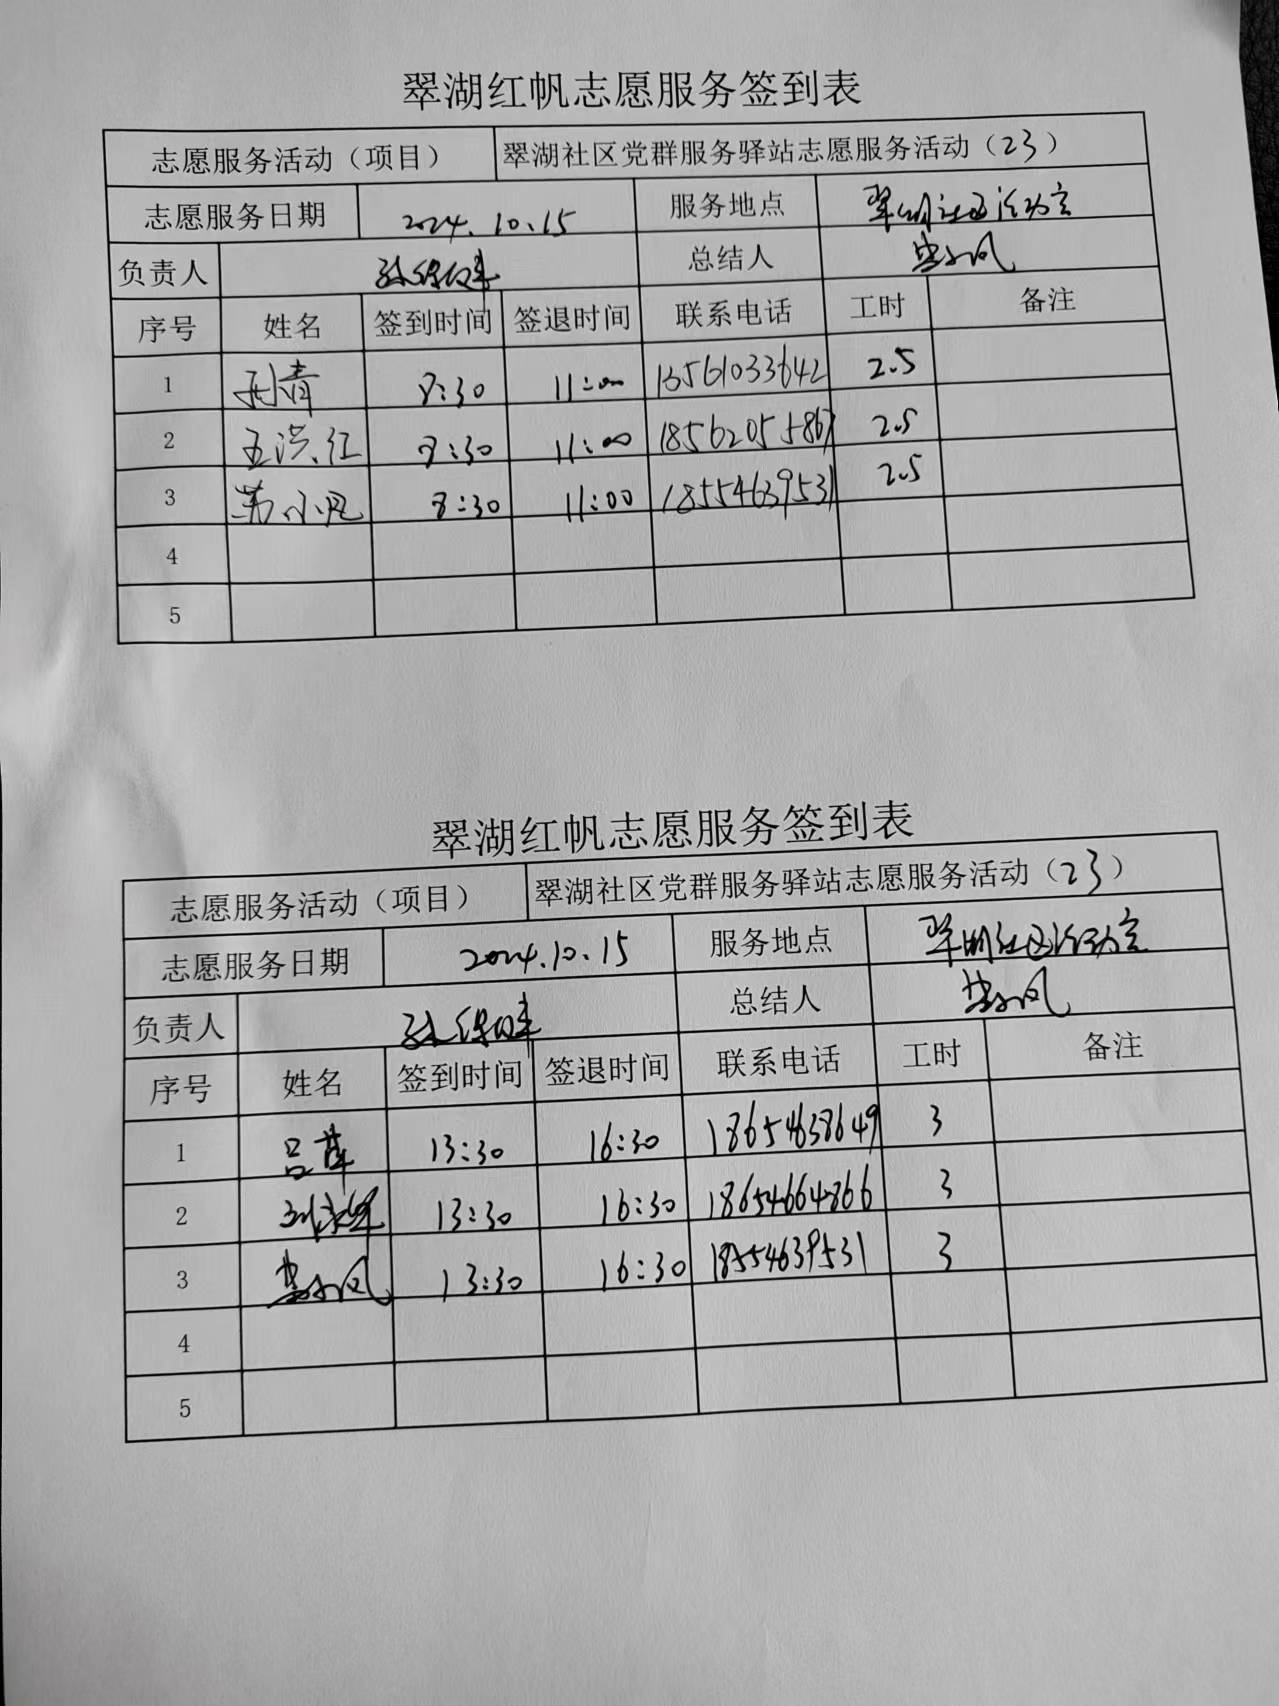 翠湖红帆志愿服务签到表
志愿服务活动（项目） 翠湖社区党群服务驿站志愿服务活动（23）
志愿服务日期 2024.10.15 服务地点 翠湖社区活动室
负责人 总结人
序号 姓名 签到时间 签退时间 联系电话 工时 备注
1 孙青 8:30 11:00 13561033642 2.5
2 王洪红 8:30 11:00 18562055867 2.5
3 小凤 8:30 11:00 18554639531 2.5
4
5
翠湖红帆志愿服务签到表
志愿服务活动（项目） 翠湖社区党群服务驿站志愿服务活动（23）
志愿服务日期 2024.10.15 服务地点 翠湖社区活动室
负责人 总结人
序号 姓名 签到时间 签退时间 联系电话 工时 备注
1 吕萍 13:30 16:30 18654638649 3
2 13:30 16:30 18654664866 3
3 13:30 16:30 18554639531 3
4
5